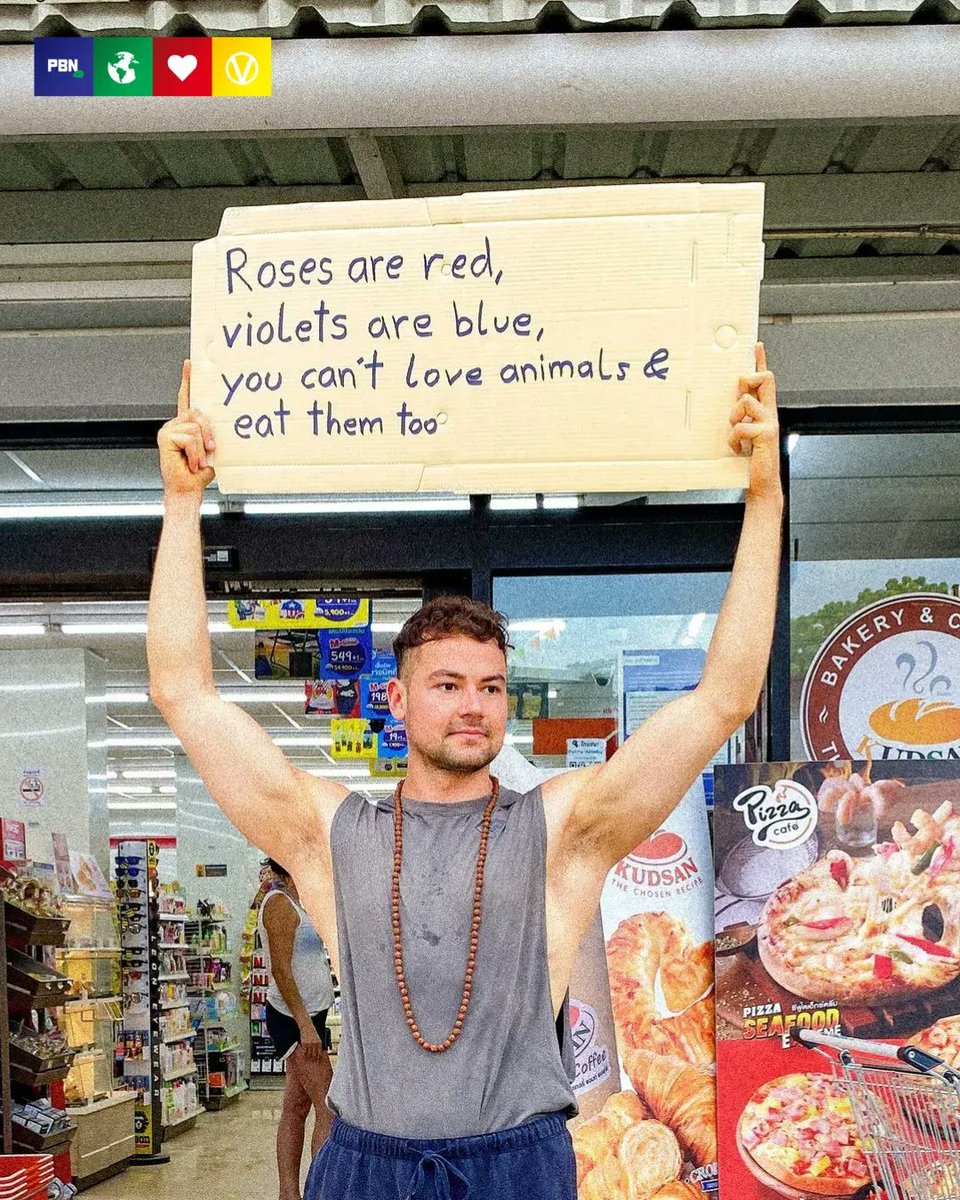 PBN
Roses are red,
violets are blue,
you can't love animals &
eat them too
549
198
19
BAKERY & C
KUDSAN
Pizza
café
KUDSAN
THE CHOSEN RECIPE
PIZZA
SEAFOOD
Coffee